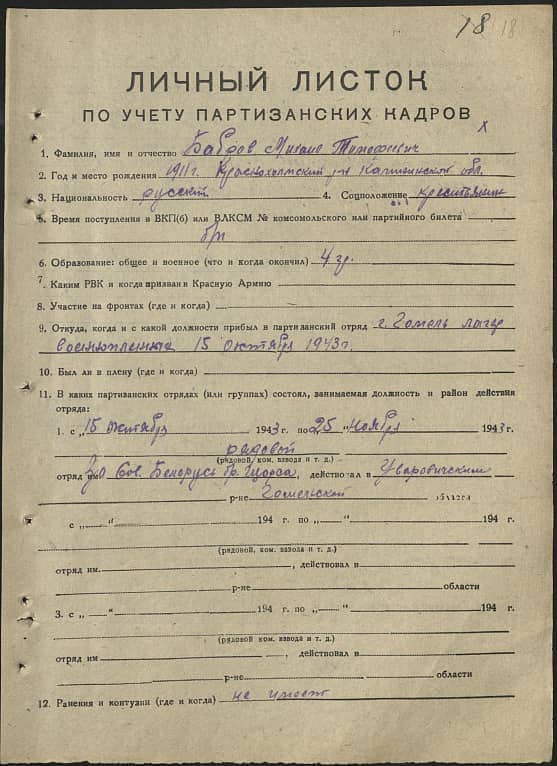 18 18
ЛИЧНЫЙ ЛИСТОК
ПО УЧЕТУ ПАРТИЗАНСКИХ КАДРОВ
х
1. Фамилия, имя и отчество Бабров Михаил Тимофеевич
2. Год и место рождения 1911 г. Краснохолмский р-н Калининской обл.
3. Национальность русский 4. Соцположение крестьянин
5. Время поступления в ВКП(б) или ВЛКСМ № комсомольского или партийного билета
б/п
6. Образование: общее и военное (что и когда окончил) 4 гр.
7. Каким РВК и когда призван в Красную Армию
8. Участие на фронтах (где и когда)
9. Откуда, когда и с какой должности прибыл в партизанский отряд г. Гомель лагерь
военнопленных 15 октября 1943 г.
10. Был ли в плену (где и когда)
11. В каких партизанских отрядах (или группах) состоял, занимаемая должность и район действия
отряда:
1. с „15 октября 1943 г. по „25 " ноября 1943 г.
рядовой
(рядовой, ком. взвода и т. д.)
отряд им. За Сов. Белорусь бр. Щорса, действовал в Уваровичском
р-не Гомельской области
с „ " 194 г. по „ " 194 г.
(рядовой, ком. взвода и т. д.)
отряд им. , действовал в
р-не области
3. с „ " 194 г. по „ " 194 г.
(рядовой, ком. взвода и т. д.)
отряд им , действовал в
р-не области
12. Ранения и контузии (где и когда) не имеет